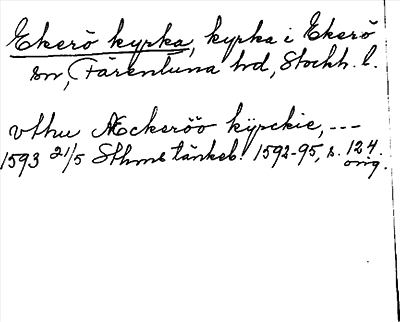 Ekerö kyrka, kyrka i Ekerö
sn, Färentuna hd, Stockh. l.
vthu Æckeröö kÿrckie, ---
1593 21/5 Sthms tänkeb. 1592-95, s. 124.
orig.